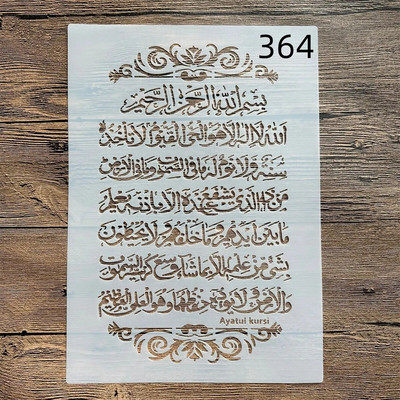 364
بسم الله الرحمن الرحيم
الله لا إله إلا هو الحي القيوم لا تأخذه
سنة ولا نوم له ما في السموت وما في الأرض
من ذا الذي يشفع عنده إلا بإذنه يعلم
ما بين أيديهم وما خلفهم ولا يحيطون
بشيء من علمه إلا بما شاء وسع كرسيه السموت
والأرض ولا يؤده حفظهما وهو العلي العظيم
Ayatul kursi